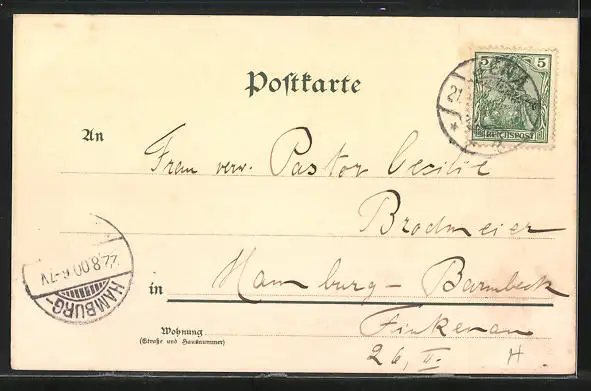 Postkarte
5 5
JENA
21.
REICHSPOST
An
Frau verw. Pastor Cecilie
Brodmeier
in Hamburg - Barmbeck
Wohnung
(Straße und Hausnummer)
Finkenau
26, II.
H.
HAMBURG-
22.8.00.6-7V